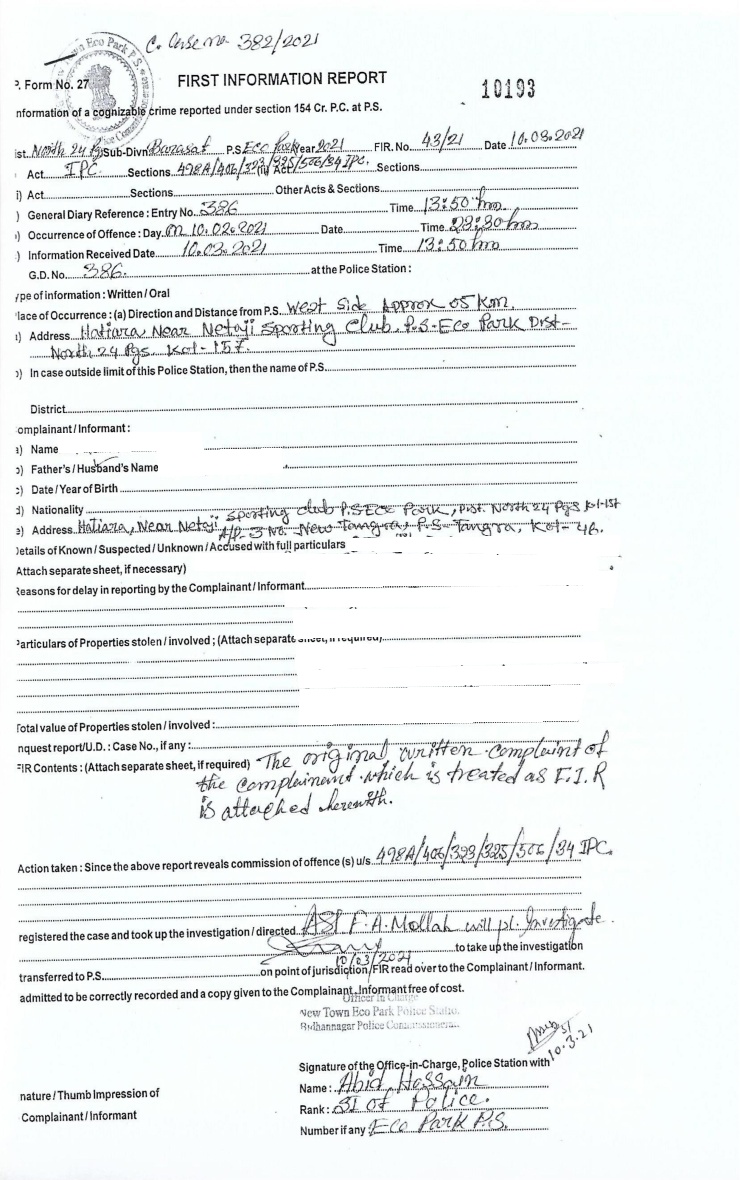 C. Case no. 382/2021
Eco Park P.S.
P. Form No. 27
FIRST INFORMATION REPORT
10193
nformation of a cognizable crime reported under section 154 Cr. P.C. at P.S.
ist. North 24 Pgs Sub-Divn. Barasat P.S Eco Park Year 2021 FIR. No. 43/21 Date 10.03.2021
Act IPC. Sections 498A/406/323/325/506/34 IPC. Sections
i) Act Sections Other Acts & Sections
) General Diary Reference : Entry No. 386 Time 13:50 hrs.
) Occurrence of Offence : Day on 10.02.2021 Date Time 23:30 hrs
) Information Received Date 10.03.2021 Time 13:50 hrs
G.D. No. 386. at the Police Station :
ype of information : Written / Oral
lace of Occurrence : (a) Direction and Distance from P.S. West side Approx 05 Km.
) Address Hatiara, Near Netaji Sporting Club, P.S-Eco Park Dist-
North 24 Pgs. Kol-157.
) In case outside limit of this Police Station, then the name of P.S.
District
omplainant / Informant :
) Name
) Father's / Husband's Name
:) Date / Year of Birth
) Nationality
) Address Hatiara, Near Netaji Sporting club P.S Eco Park, Dist. North 24 Pgs Kol-157
A/P- 3 No. New Tangra, P.S- Tangra, Kol-46.
Details of Known / Suspected / Unknown / Accused with full particulars
Attach separate sheet, if necessary)
Reasons for delay in reporting by the Complainant / Informant
Particulars of Properties stolen / involved ; (Attach separate sheet, if required)
Total value of Properties stolen / involved :
nquest report/U.D. : Case No., if any :
FIR Contents : (Attach separate sheet, if required) The original written complaint of
the Complainant which is treated as F.I.R
is attached herewith.
Action taken : Since the above report reveals commission of offence (s) u/s. 498A/406/323/325/506/34 IPC.
registered the case and took up the investigation / directed ASI F. A. Mollah will pl. Investigate.
to take up the investigation
10/03/2021
transferred to P.S. on point of jurisdiction/FIR read over to the Complainant / Informant.
admitted to be correctly recorded and a copy given to the Complainant Informant free of cost.
Officer In Charge
New Town Eco Park Police Statio.
Bidhannagar Police Commissionera..
SI
10.3.21
Signature of the Office-in-Charge, Police Station with
nature / Thumb Impression of
Complainant / Informant
Name : Abid Hassain
Rank : SI of Police.
Number if any Eco Park P.S.